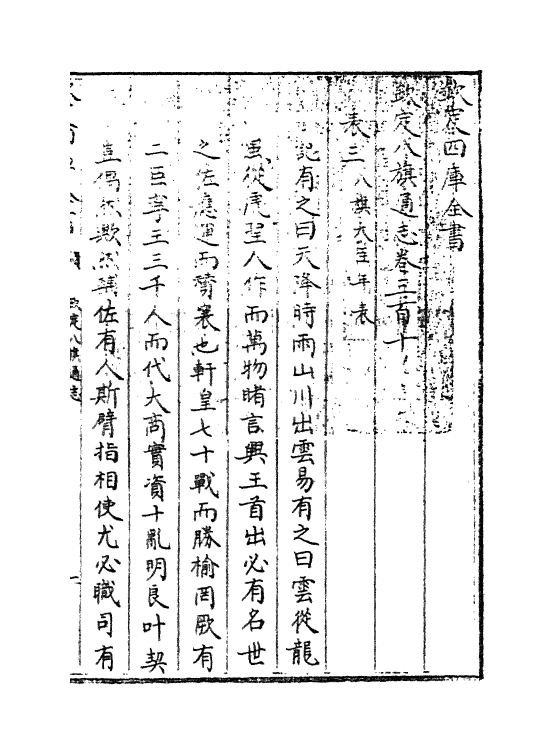 欽定四庫全書
欽定八旗通志卷三百十
表三 八旗大臣年表
記有之曰天降時雨山川出雲易有之曰雲從龍
風從虎聖人作而萬物睹言興王首出必有名世
之佐應運而贊襄也軒皇七十戰而勝榆罔厥有
二臣辛王三千人而代大商實資十亂明良叶契
豈偶然歟然輔佐有人斯臂指相使尤必職司有
欽定八旗通志